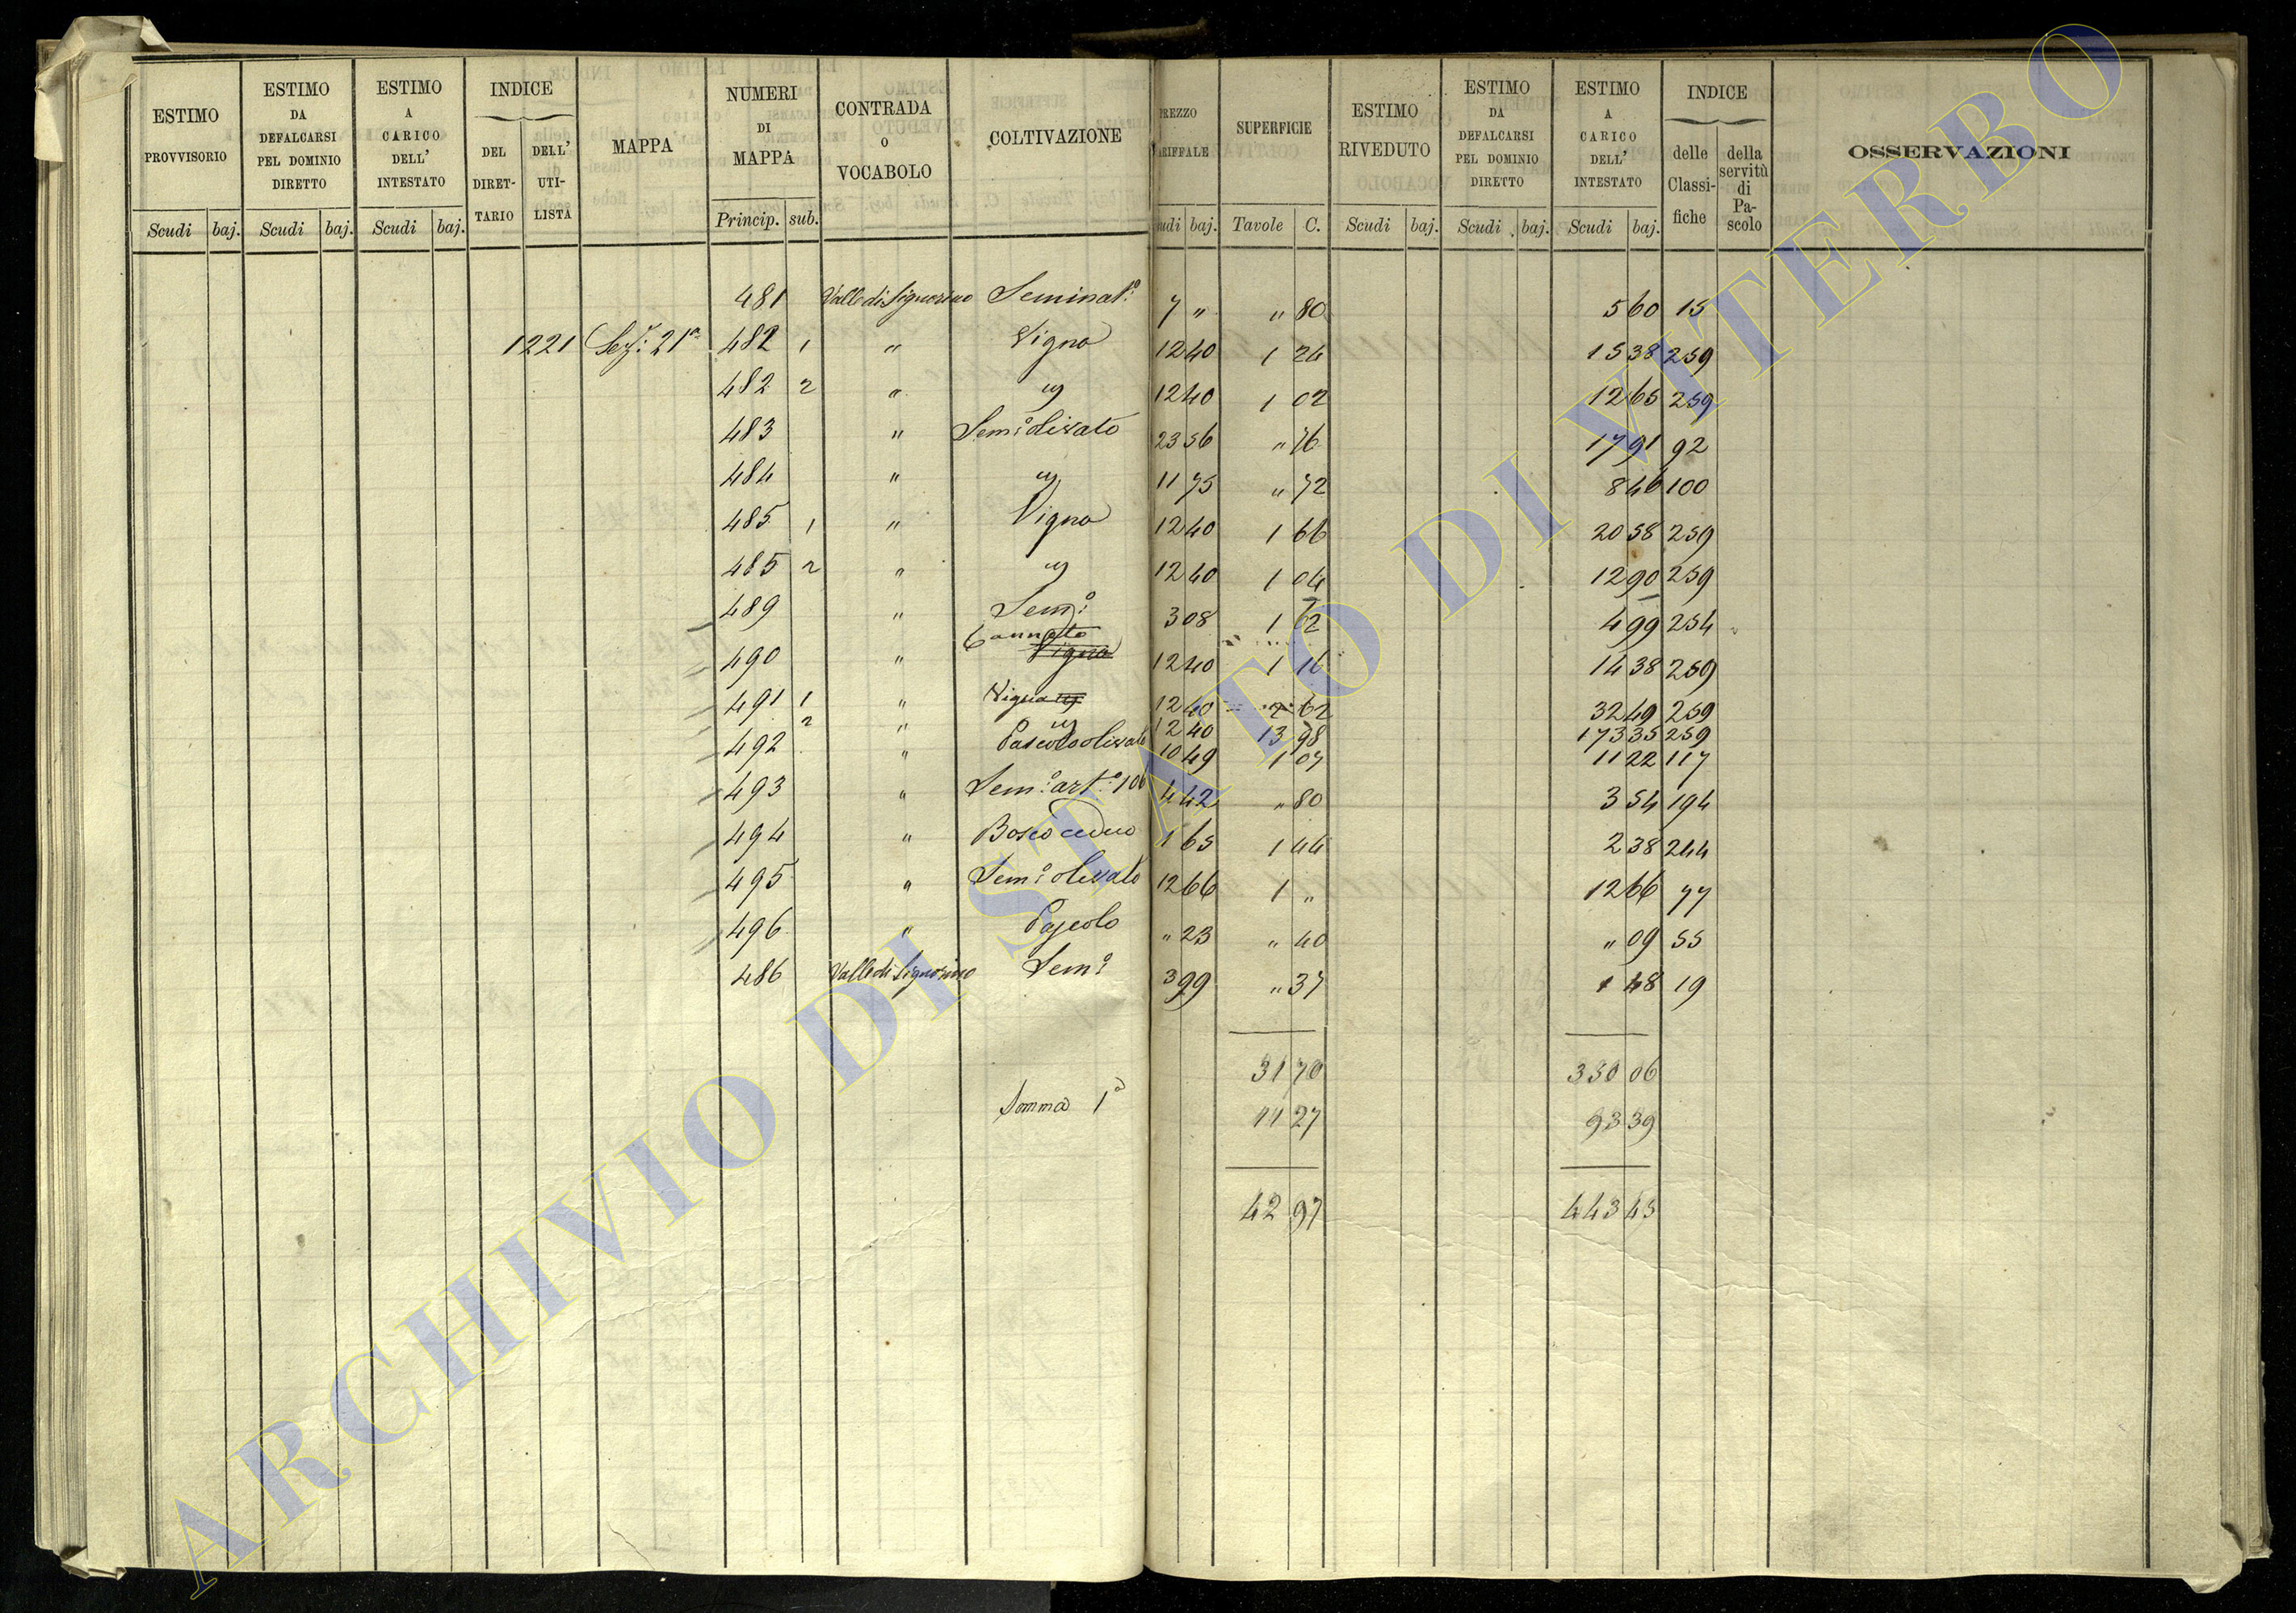 ESTIMO PROVVISORIO | ESTIMO DA DEFALCARSI PEL DOMINIO DIRETTO | ESTIMO A CARICO DELL' INTESTATO | INDICE DEL DIRET-TARIO | DELL' UTI-LISTA | MAPPA | NUMERI DI MAPPA | CONTRADA O VOCABOLO | COLTIVAZIONE | PREZZO TARIFFALE | SUPERFICIE | ESTIMO RIVEDUTO | ESTIMO DA DEFALCARSI PEL DOMINIO DIRETTO | ESTIMO A CARICO DELL' INTESTATO | INDICE delle Classi-fiche | della servitù di Pa-scolo | OSSERVAZIONI
Scudi baj. Scudi baj. Scudi baj. Princip. sub. Scudi baj. Tavole C. Scudi baj. Scudi baj. Scudi baj.
481 Valle di Signorino Seminat.o 7 " " 80 5 60 15
1221 Sez. 21a 482 1 " Vigna 12 40 1 24 15 38 259
482 2 " " 12 40 1 02 12 65 259
483 " Sem.o olivato 23 56 " 76 17 91 92
484 " " 11 75 " 72 8 46 100
485 1 " Vigna 12 40 1 66 20 58 259
485 2 " " 12 40 1 04 12 90 259
489 " Sem.o 3 08 1 62 4 99 254
490 " Canneto Vigna 12 40 1 16 14 38 259
491 1 " Vigna " 12 40 2 62 32 49 259
2 " " 12 40 13 98 173 35 259
492 " Pascolo olivato 10 49 1 07 11 22 117
493 " Sem.o art.o 106 4 42 " 80 3 54 194
494 " Bosco ceduo 1 65 1 44 2 38 244
495 " Sem.o olivato 12 66 1 " 12 66 77
496 " Pascolo " 23 " 40 " 09 55
486 Valle di Signorino Sem.o 3 99 " 37 1 48 19
31 70 350 06
Somma 1a 11 27 93 39
42 97 443 45
ARCHIVIO DI STATO DI VITERBO